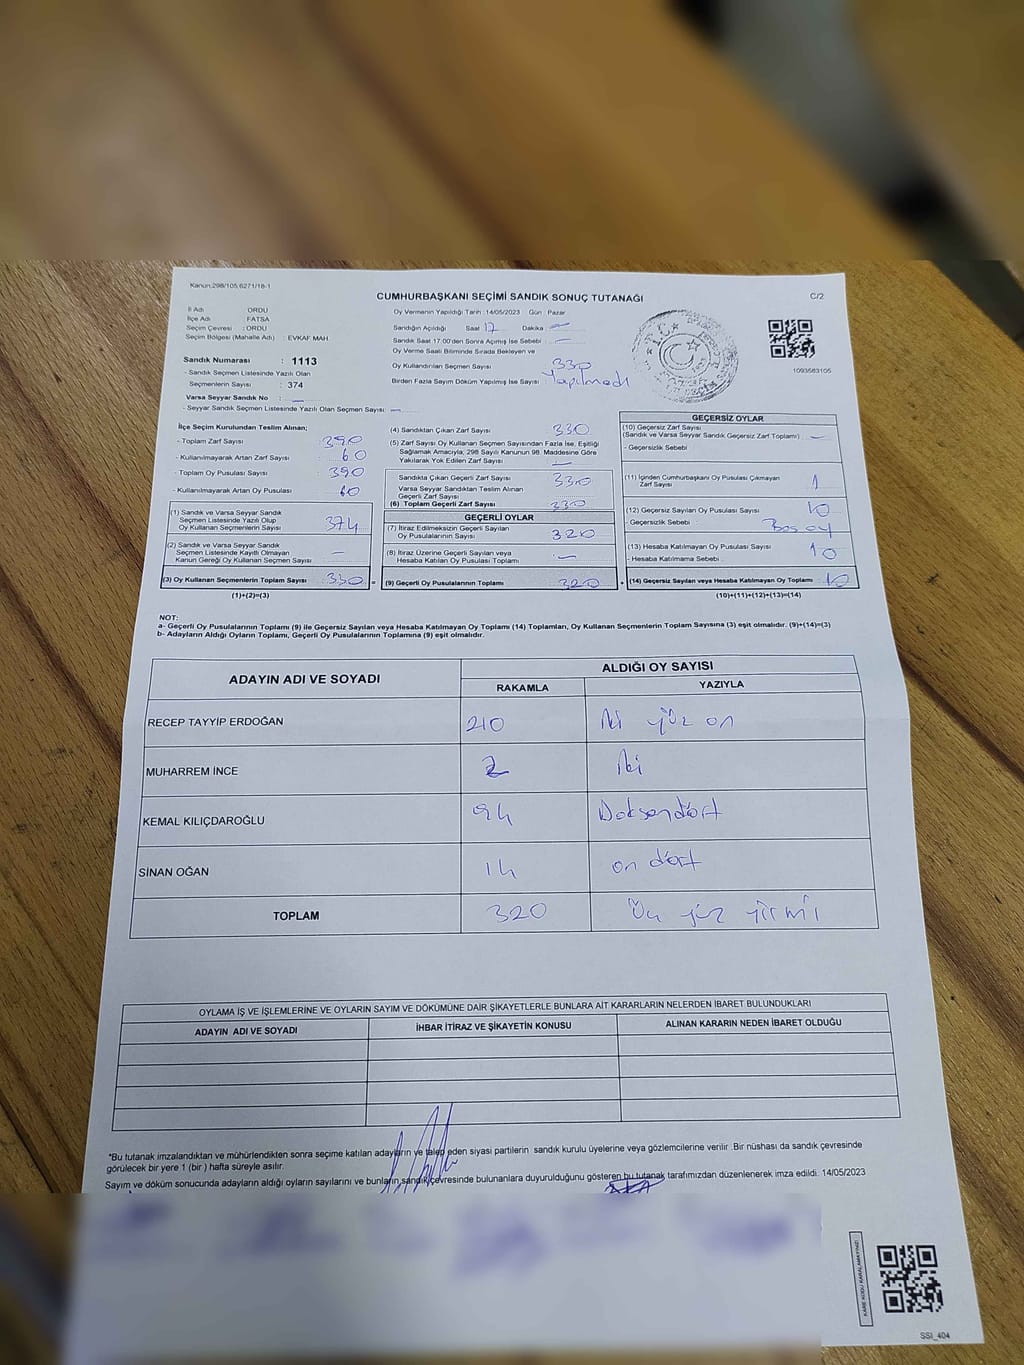 Kanun:298/105,6271/18-1
CUMHURBAŞKANI SEÇİMİ SANDIK SONUÇ TUTANAĞI
C/2
İl Adı : ORDU
İlçe Adı : FATSA
Seçim Çevresi : ORDU
Seçim Bölgesi (Mahalle Adı) : EVKAF MAH
Sandık Numarası : 1113
- Sandık Seçmen Listesinde Yazılı Olan
Seçmenlerin Sayısı : 374
Varsa Seyyar Sandık No : —
- Seyyar Sandık Seçmen Listesinde Yazılı Olan Seçmen Sayısı: —
Oy Vermenin Yapıldığı Tarih :14/05/2023 Gün : Pazar
Sandığın Açıldığı Saat 17 Dakika —
Sandık Saat 17.00'den Sonra Açılmış İse Sebebi : —
Oy Verme Saati Bitiminde Sırada Bekleyen ve
Oy Kullandırılan Seçmen Sayısı : 330
Birden Fazla Sayım Döküm Yapılmış İse Sayısı : Yapılmadı
1093583105
İlçe Seçim Kurulundan Teslim Alınan;
- Toplam Zarf Sayısı : 390
- Kullanılmayarak Artan Zarf Sayısı : 60
- Toplam Oy Pusulası Sayısı : 390
- Kullanılmayarak Artan Oy Pusulası : 60
(1) Sandık ve Varsa Seyyar Sandık
Seçmen Listesinde Yazılı Olup
Oy Kullanan Seçmenlerin Sayısı : 374
(2) Sandık ve Varsa Seyyar Sandık
Seçmen Listesinde Kayıtlı Olmayan
Kanun Gereği Oy Kullanan Seçmen Sayısı : —
(3) Oy Kullanan Seçmenlerin Toplam Sayısı : 330 =
(1)+(2)=(3)
(4) Sandıktan Çıkan Zarf Sayısı : 330
(5) Zarf Sayısı Oy Kullanan Seçmen Sayısından Fazla İse, Eşitliği
Sağlamak Amacıyla; 298 Sayılı Kanunun 98. Maddesine Göre
Yakılarak Yok Edilen Zarf Sayısı : —
Sandıkta Çıkan Geçerli Zarf Sayısı : 330
Varsa Seyyar Sandıktan Teslim Alınan
Geçerli Zarf Sayısı :
(6) Toplam Geçerli Zarf Sayısı : 330
GEÇERLİ OYLAR
(7) İtiraz Edilmeksizin Geçerli Sayılan
Oy Pusulalarının Sayısı : 320
(8) İtiraz Üzerine Geçerli Sayılan veya
Hesaba Katılan Oy Pusulası Toplamı : —
(9) Geçerli Oy Pusulalarının Toplamı : 320 +
GEÇERSİZ OYLAR
(10) Geçersiz Zarf Sayısı
(Sandık ve Varsa Seyyar Sandık Geçersiz Zarf Toplamı) : —
- Geçersizlik Sebebi :
(11) İçinden Cumhurbaşkanı Oy Pusulası Çıkmayan
Zarf Sayısı : 1
(12) Geçersiz Sayılan Oy Pusulası Sayısı : 10
- Geçersizlik Sebebi : Boş oy
(13) Hesaba Katılmayan Oy Pusulası Sayısı : 10
- Hesaba Katılmama Sebebi :
(14) Geçersiz Sayılan veya Hesaba Katılmayan Oy Toplamı : 10
(10)+(11)+(12)+(13)=(14)
NOT:
a- Geçerli Oy Pusulalarının Toplamı (9) ile Geçersiz Sayılan veya Hesaba Katılmayan Oy Toplamı (14) Toplamları, Oy Kullanan Seçmenlerin Toplam Sayısına (3) eşit olmalıdır. (9)+(14)=(3)
b- Adayların Aldığı Oyların Toplamı, Geçerli Oy Pusulalarının Toplamına (9) eşit olmalıdır.
ADAYIN ADI VE SOYADI ALDIĞI OY SAYISI
RAKAMLA YAZIYLA
RECEP TAYYİP ERDOĞAN 210 iki yüz on
MUHARREM İNCE 2 iki
KEMAL KILIÇDAROĞLU 94 Doksandört
SİNAN OĞAN 14 on dört
TOPLAM 320 Üç yüz yirmi
OYLAMA İŞ VE İŞLEMLERİNE VE OYLARIN SAYIM VE DÖKÜMÜNE DAİR ŞİKAYETLERLE BUNLARA AİT KARARLARIN NELERDEN İBARET BULUNDUKLARI
ADAYIN ADI VE SOYADI İHBAR İTİRAZ VE ŞİKAYETİN KONUSU ALINAN KARARIN NEDEN İBARET OLDUĞU
*Bu tutanak imzalandıktan ve mühürlendikten sonra seçime katılan adayların ve talep eden siyasi partilerin sandık kurulu üyelerine veya gözlemcilerine verilir. Bir nüshası da sandık çevresinde
görülecek bir yere 1 (bir) hafta süreyle asılır.
Sayım ve döküm sonucunda adayların aldığı oyların sayılarını ve bunların sandık çevresinde bulunanlara duyurulduğunu gösteren bu tutanak tarafımızdan düzenlenerek imza edildi. 14/05/2023
KARE KODU KARALAMAYINIZ!
SSI_404